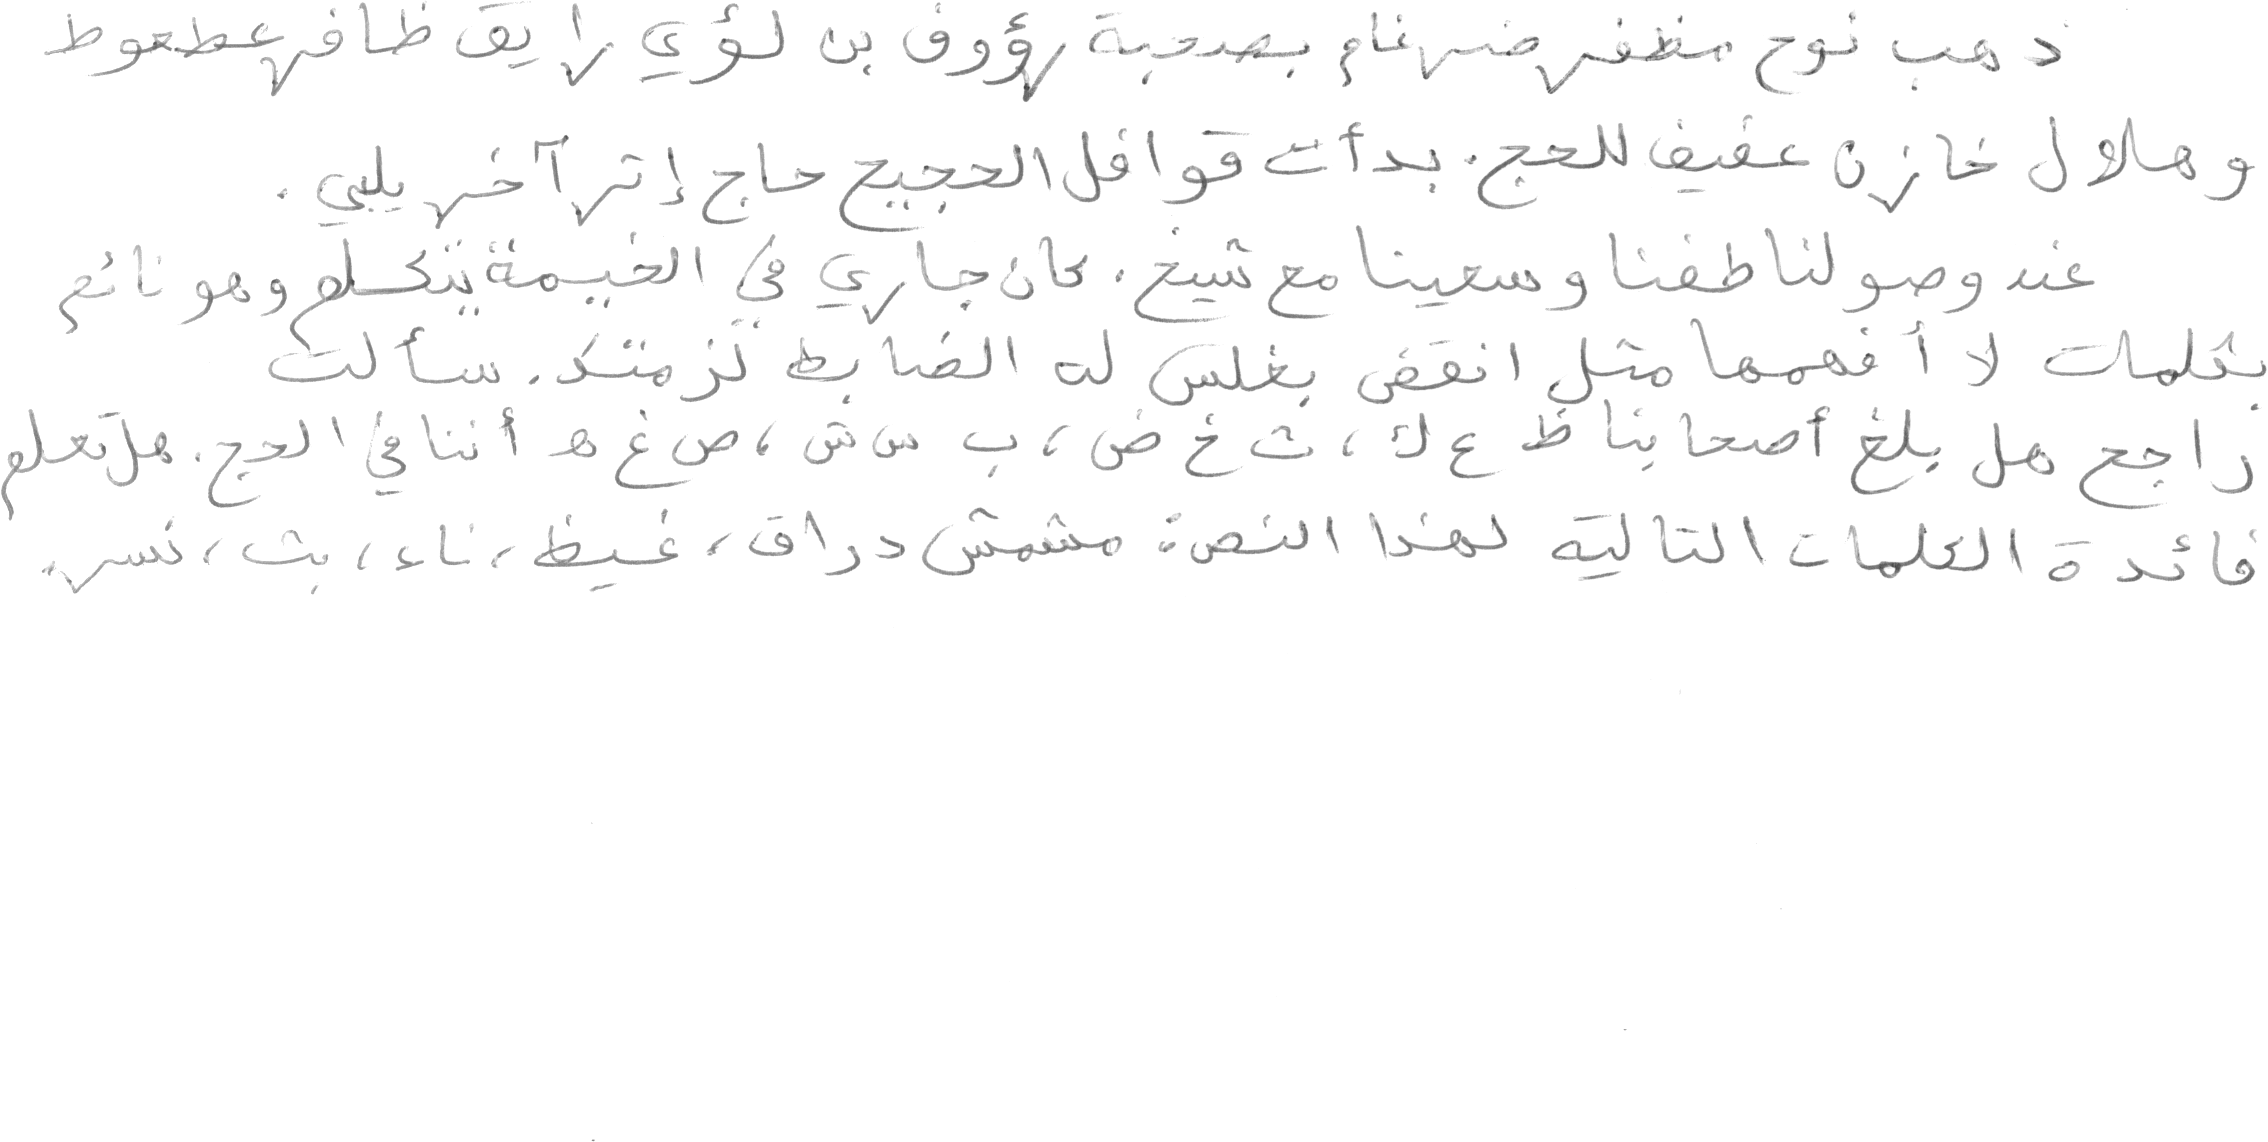 ذهب نوح مظفر ضرغام بصحبة رؤوف بن لؤي رايق ظافر عطعوط
وهلال خازن عفيف للحج. بدأت قوافل الحجيج حاج إثر آخر يلبي.
عند وصولنا طفنا وسعينا مع شيخ. كان جاري في الخيمة يتكلم وهو نائم
بكلمات لا أفهمها مثل انقض بغلس له الضابط لزمتك. سألت
راجح هل بلغ أصحابنا ظ ع ك، ث خ ض، ب س ش، ص غ ه أننا في الحج. هل تعلم
فائدة الكلمات التالية لهذا النص: مشمش دراق، غيظ، ناء، بث، نسر.